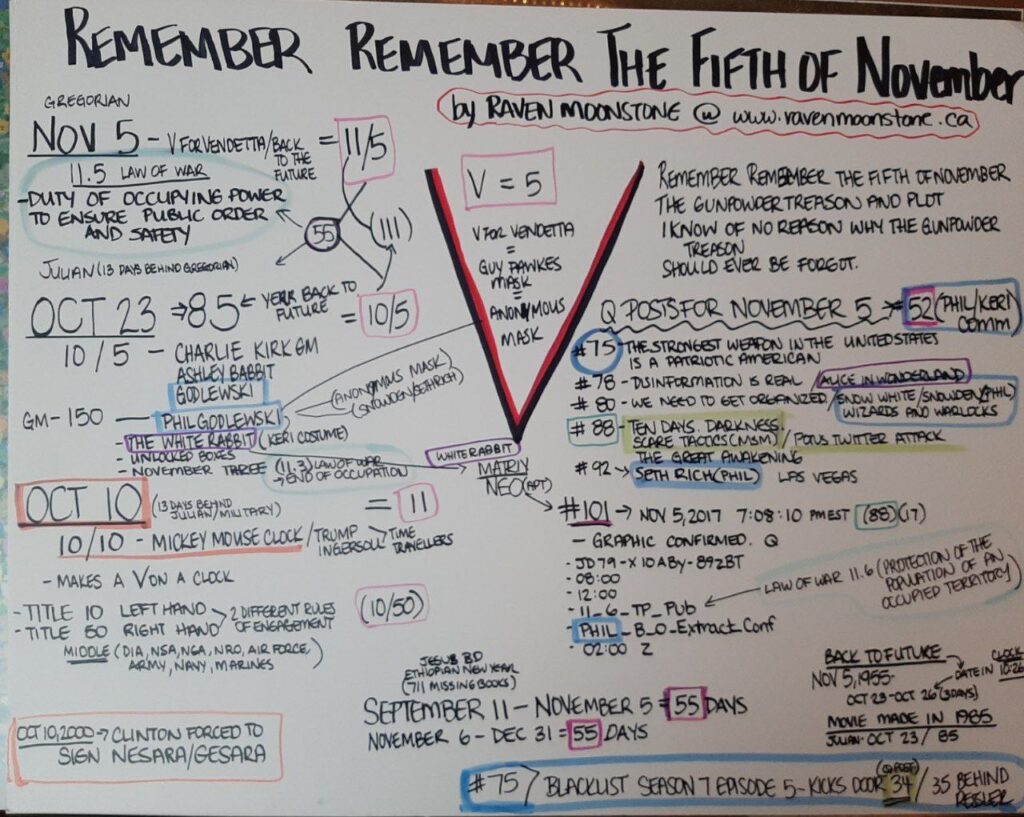 REMEMBER REMEMBER THE FIFTH OF NOVEMBER
by RAVEN MOONSTONE @ www.ravenmoonstone.ca
GREGORIAN
NOV 5 - V FOR VENDETTA/BACK TO THE FUTURE = 11/5
11.5 LAW OF WAR
- DUTY OF OCCUPYING POWER
TO ENSURE PUBLIC ORDER
AND SAFETY
55
(111)
JULIAN (13 DAYS BEHIND GREGORIAN)
OCT 23 ⇒ 85 ← YEAR BACK TO FUTURE = 10/5
10/5 - CHARLIE KIRK GM
ASHLEY BABBIT
GODLEWSKI
GM-150 — PHIL GODLEWSKI
(ANONYMOUS MASK)
(SNOWDEN/SETH RICH)
- THE WHITE RABBIT (KERI COSTUME)
- UNLOCKED BOXES
- NOVEMBER THREE (11.3) LAW OF WAR
→ END OF OCCUPATION
OCT 10 (13 DAYS BEHIND JULIAN/MILITARY) = 11
10/10 - MICKEY MOUSE CLOCK / TRUMP INGERSOLL > TIME TRAVELLERS
- MAKES A V ON A CLOCK
- TITLE 10 LEFT HAND
- TITLE 50 RIGHT HAND > 2 DIFFERENT RULES OF ENGAGEMENT (10/50)
MIDDLE (DIA, NSA, NGA, NRO, AIR FORCE,
ARMY, NAVY, MARINES)
OCT 10, 2000 → CLINTON FORCED TO
SIGN NESARA/GESARA
V = 5
V FOR VENDETTA
=
GUY FAWKES
MASK
=
ANONYMOUS
MASK
WHITE RABBIT
MATRIX
NEO (APT)
REMEMBER REMEMBER THE FIFTH OF NOVEMBER
THE GUNPOWDER TREASON AND PLOT
I KNOW OF NO REASON WHY THE GUNPOWDER
TREASON
SHOULD EVER BE FORGOT.
Q POSTS FOR NOVEMBER 5 → 52 (PHIL/KERI) COMM
#75 - THE STRONGEST WEAPON IN THE UNITED STATES
IS A PATRIOTIC AMERICAN
#78 - DISINFORMATION IS REAL / ALICE IN WONDERLAND
#80 - WE NEED TO GET ORGANIZED / SNOW WHITE / SNOWDEN (PHIL)
WIZARDS AND WARLOCKS
#88 - TEN DAYS. DARKNESS.
SCARE TACTICS (MSM) / POTUS TWITTER ATTACK
THE GREAT AWAKENING
#92 → SETH RICH (PHIL) LAS VEGAS
#101 → NOV 5, 2017 7:08:10 PM EST (88) (17)
- GRAPHIC CONFIRMED. Q
- JD 79-X 10 ABy-89ZBT
- 08:00
- 12:00
- 11_6_TP_Pub
LAW OF WAR 11.6 (PROTECTION OF THE
POPULATION OF AN
OCCUPIED TERRITORY)
- PHIL_B_O_Extract_Conf
- 02:00 Z
JESUS BD
ETHIOPIAN NEW YEAR
(711 MISSING BOOKS)
SEPTEMBER 11 - NOVEMBER 5 = 55 DAYS
NOVEMBER 6 - DEC 31 = 55 DAYS
BACK TO FUTURE
NOV 5, 1955
DATE IN CLOCK 10:26
OCT 23 - OCT 26 (3 DAYS)
MOVIE MADE IN 1985
JULIAN - OCT 23 / 85
#75 / BLACKLIST SEASON 7 EPISODE 5 - KICKS DOOR (Q POST) 34 / 35 BEHIND